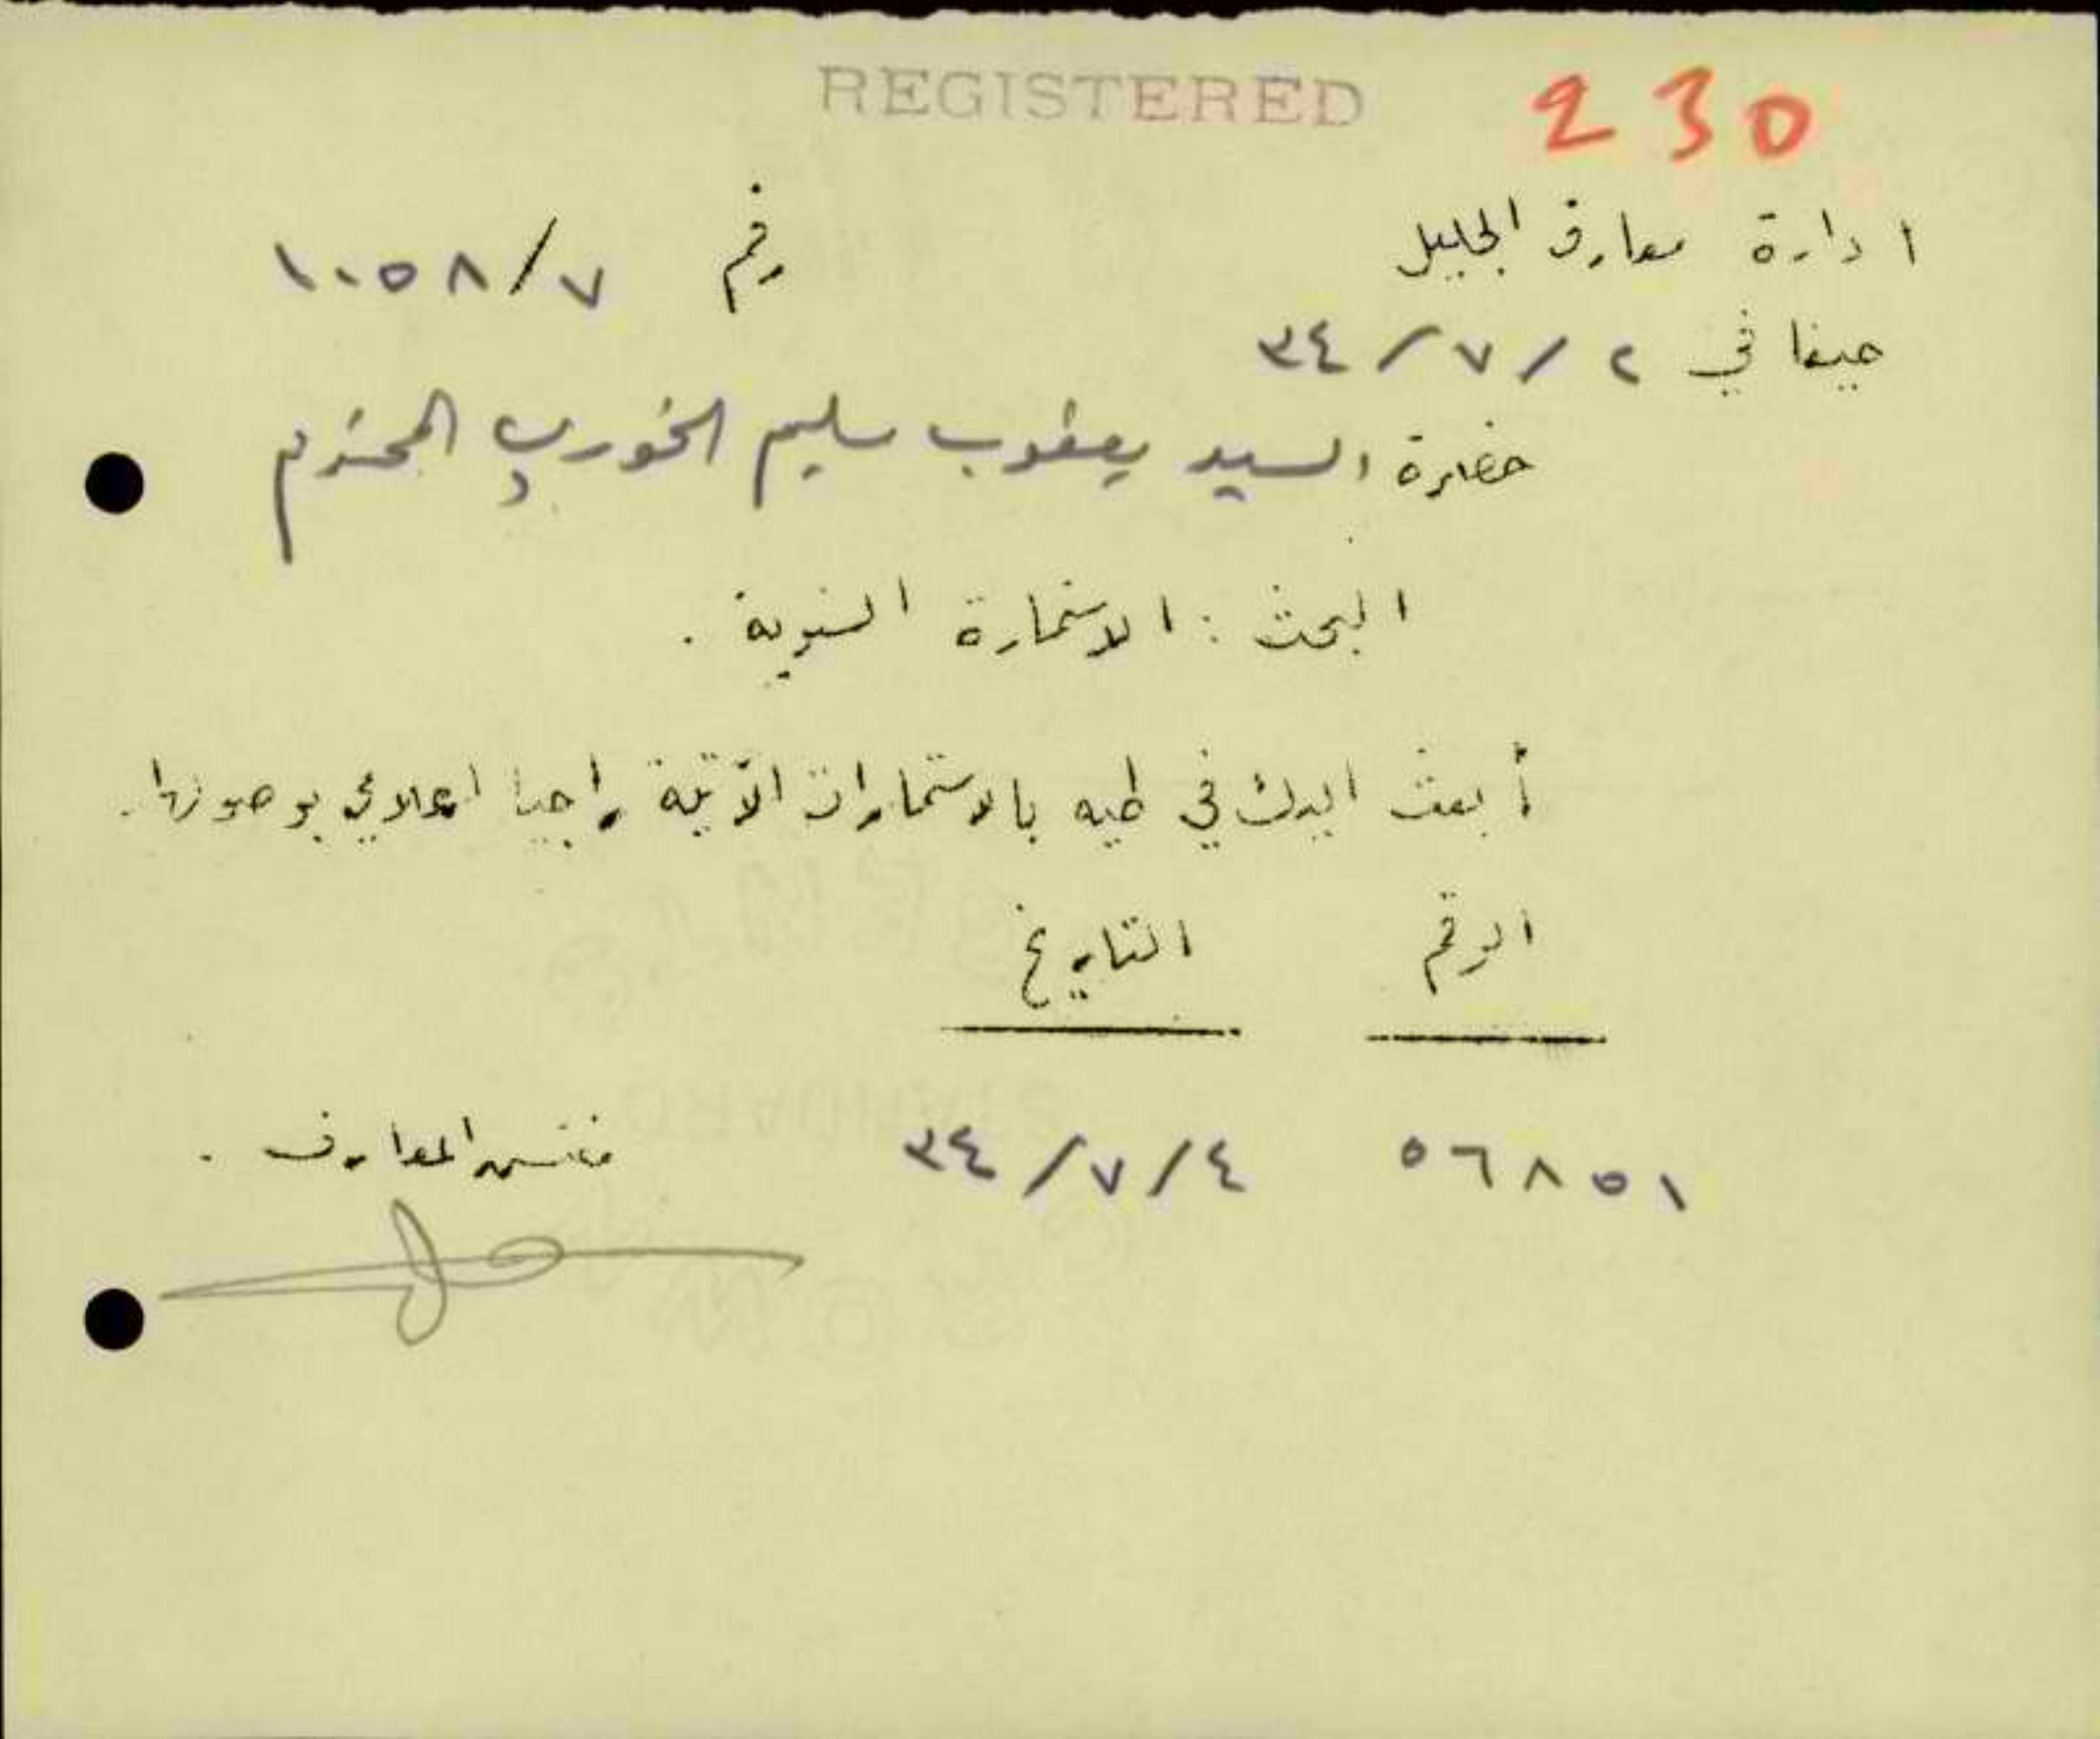 REGISTERED
230
ادارة معارف الجليل
رقم ١٠٥٨/٧
حيفا في ٢ / ٧ / ٣٤
حضرة السيد يعقوب سليم الخوري المحترم
البحث : الاستمارة السنوية .
أبعث اليك في طيه بالاستمارات الآتية راجيا اعلامي بوصولها .
الرقم التاريخ
٥٦٨٥١ ٣٤/٧/٤
مفتش المعارف .